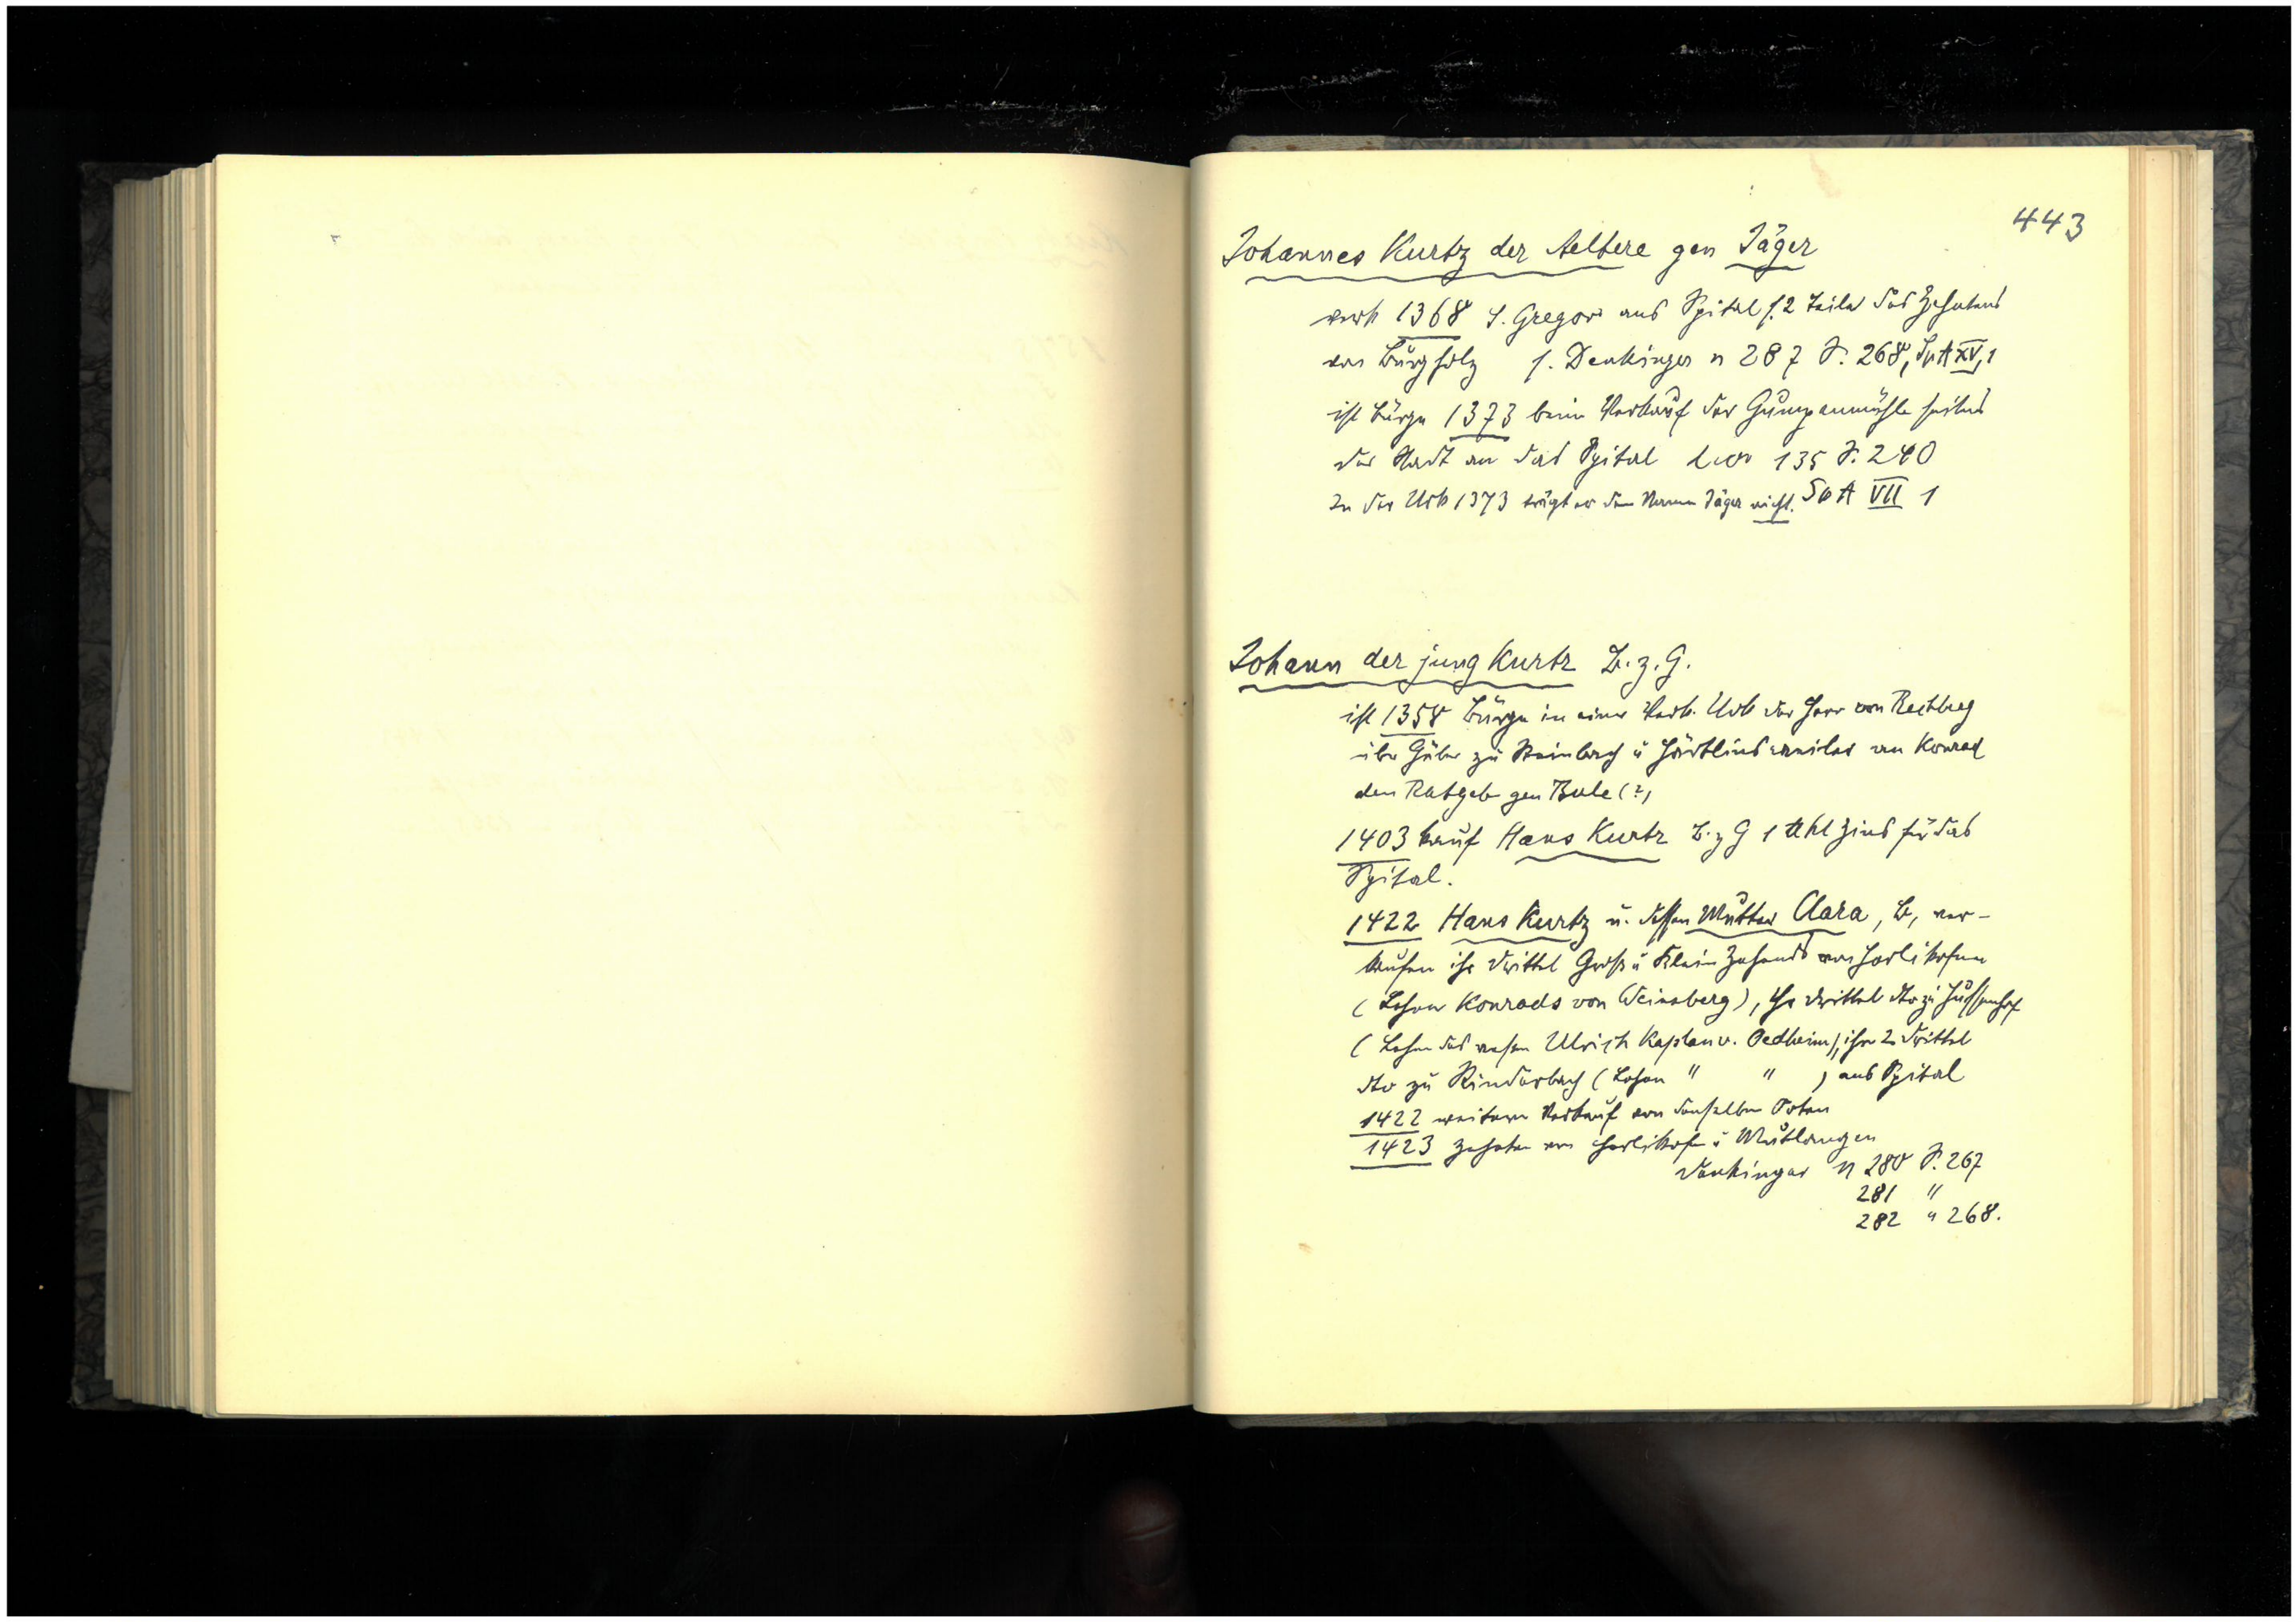 443
Johannes Kurtz der Aeltere gen Jäger
verk 1368 S. Gregor ans Spital s. 2 Teile des Zehnten
von Burgholz s. Denkinger n 287 S. 268, Sp A XV, 1
ist Bürge 1373 beim Verkauf der Gumpenmühle seitens
der Stadt an das Spital 135 S. 240
In der Urk 1373 trägt er den Namen Jäger nicht. Sp A VII 1
Johann der jung Kurtz B. z. G.
ist 1358 Bürge in einer Verk. Urk der Herr von Rechberg
über Güter zu Steinbach u Härtlinsweiler an Konrad
den Ratgeb gen Bule (?)
1403 kauf Hans Kurtz B. z G 1 ℔ hl Zins für das
Spital.
1422 Hans Kurtz u. dessen Mutter Clara, B, ver-
kaufen ihr Drittel Groß u Klein Zehends von Herlikofen
(Lehen Konrads von Weinsberg), ihr Drittel dto zu Hussenhof
(Lehen des Ulrich Kaplan v. Oedheim), ihre 2 Drittel
dto zu Rinderbach (Lehen " " ) ans Spital
1422 weiterer Verkauf von denselben Orten
1423 Zehnten von Herlikofen u Mutlangen
Denkinger n 280 S. 267
281 "
282 " 268.